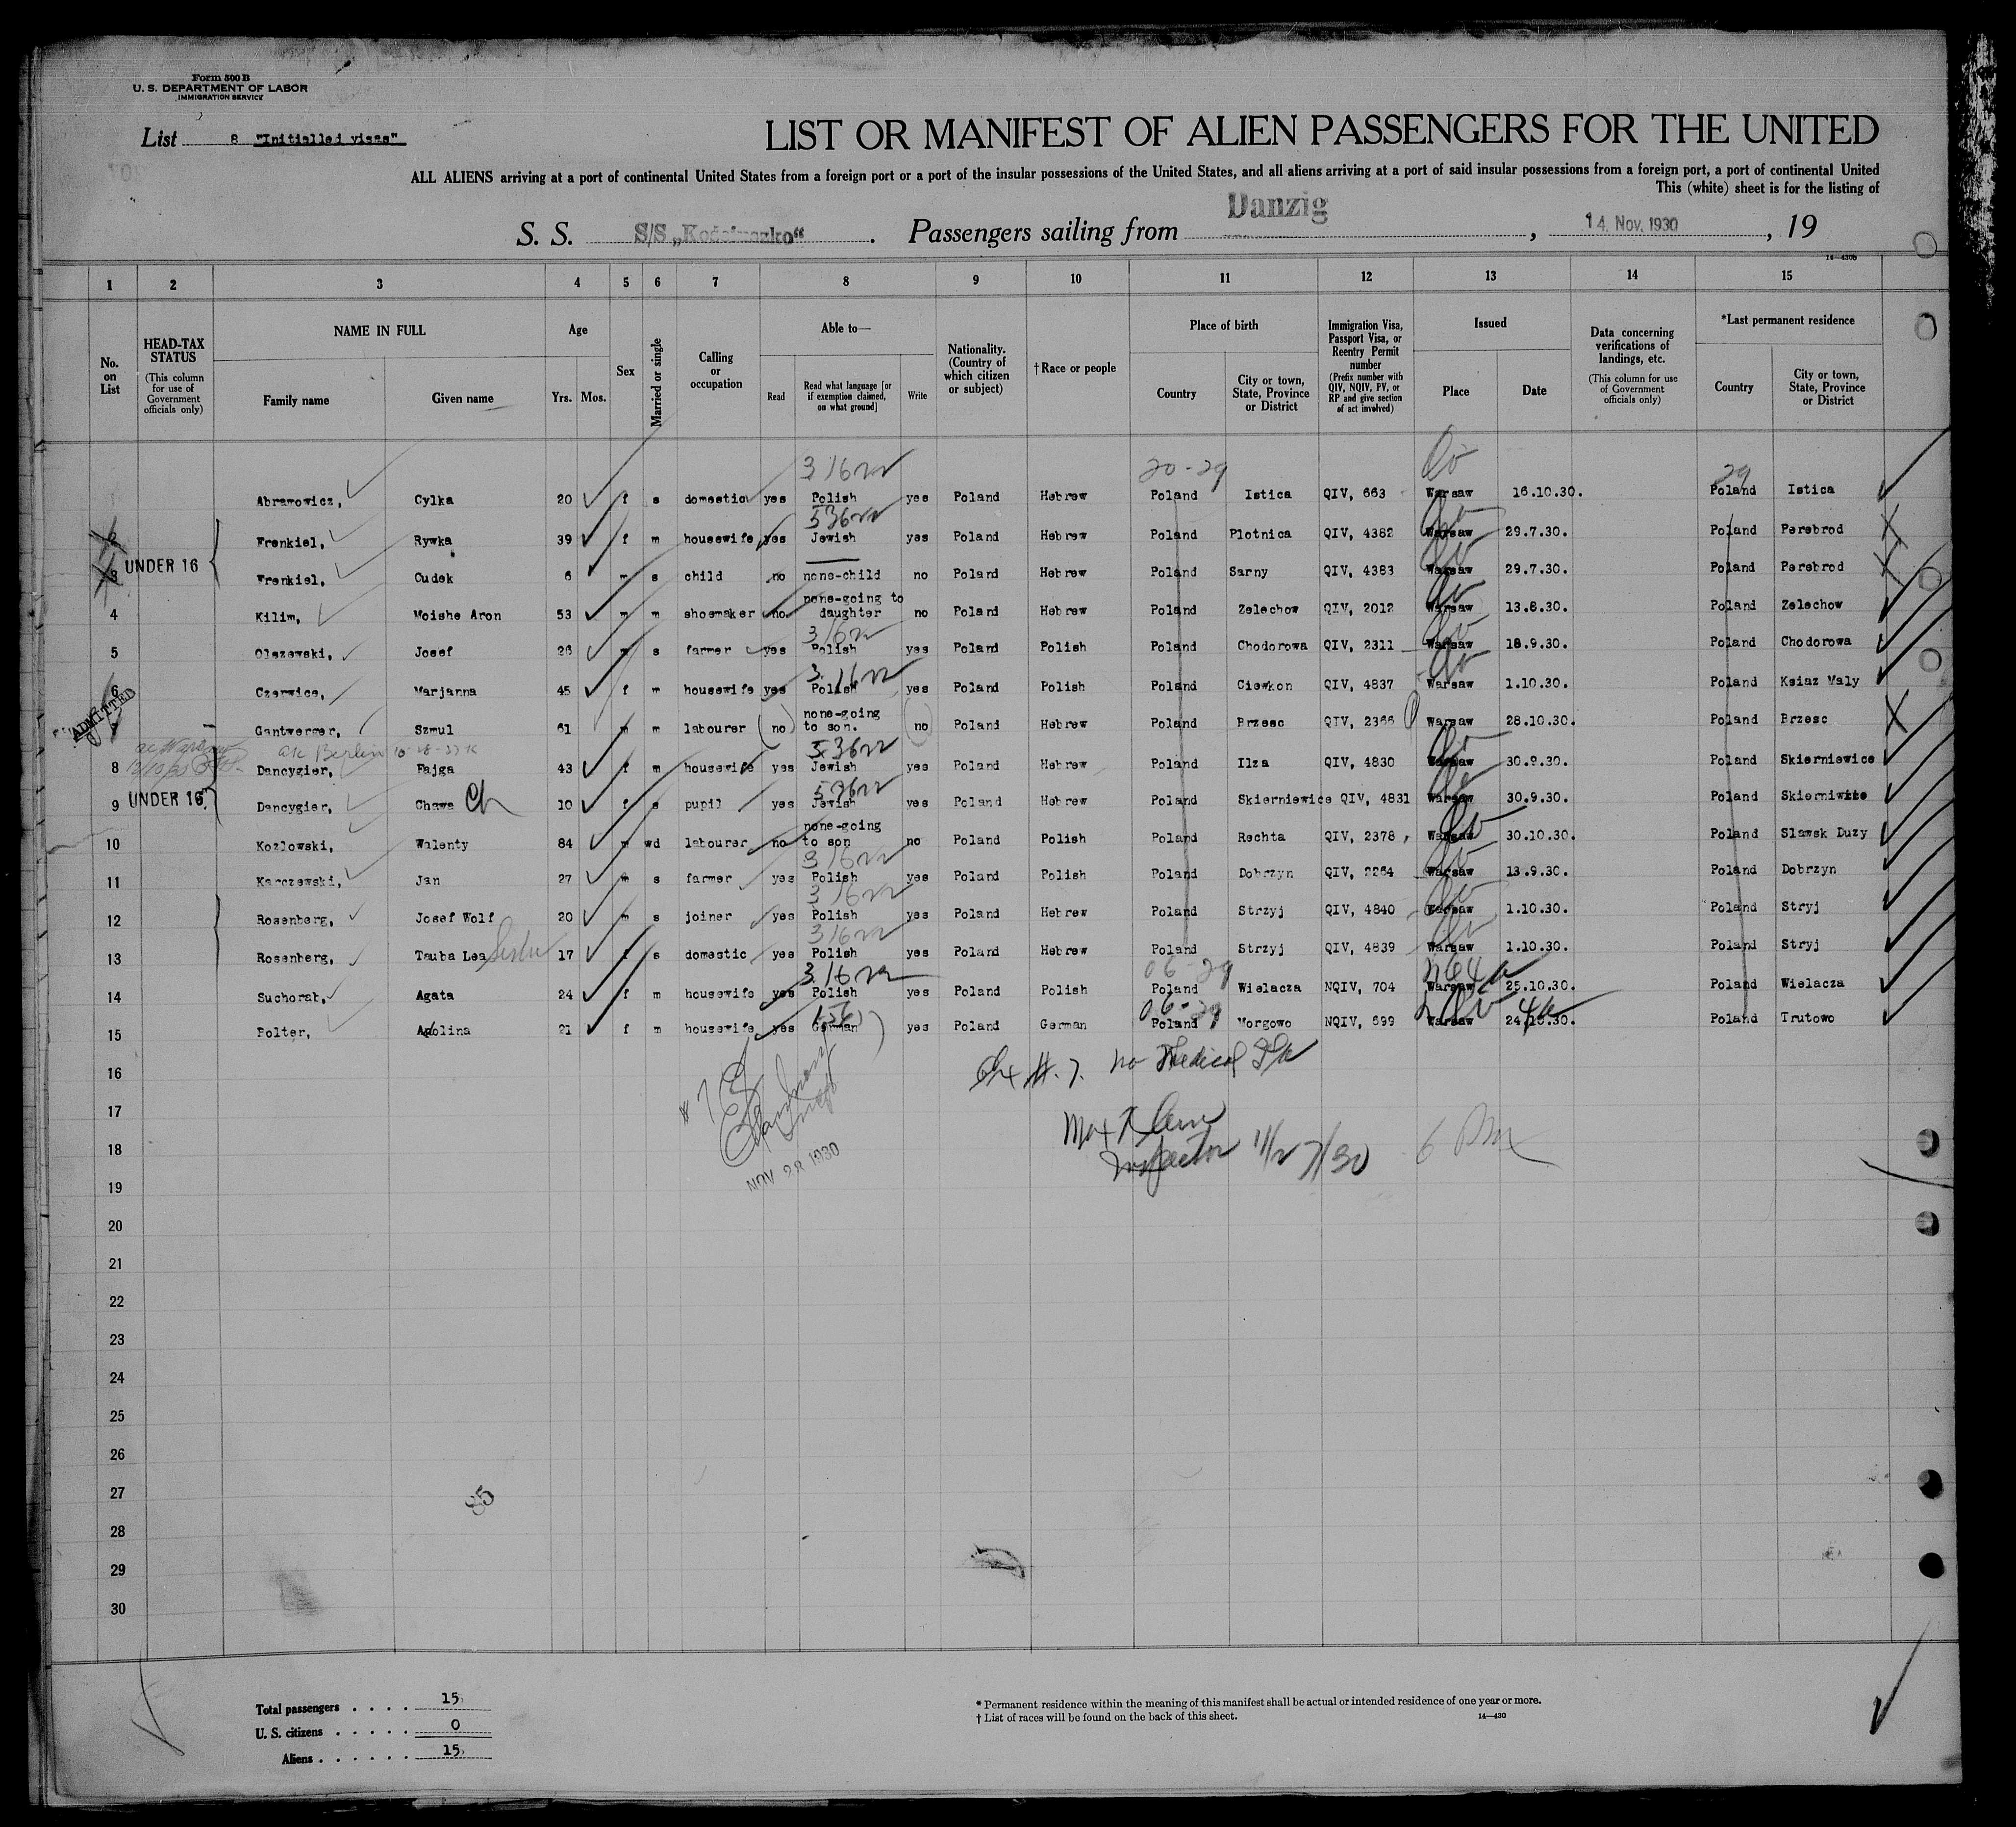 Form 500 B
U. S. DEPARTMENT OF LABOR
IMMIGRATION SERVICE
List 8 "Initialled visas"
LIST OR MANIFEST OF ALIEN PASSENGERS FOR THE UNITED
ALL ALIENS arriving at a port of continental United States from a foreign port or a port of the insular possessions of the United States, and all aliens arriving at a port of said insular possessions from a foreign port, a port of continental United
This (white) sheet is for the listing of
S. S. S/S „Kościuszko“. Passengers sailing from Danzig, 14. Nov. 1930, 19
14—430b
1 2 3 4 5 6 7 8 9 10 11 12 13 14 15
No. on List
HEAD-TAX STATUS (This column for use of Government officials only)
NAME IN FULL Family name Given name
Age Yrs. Mos.
Sex
Married or single
Calling or occupation
Able to— Read Read what language [or if exemption claimed, on what ground] Write
Nationality. (Country of which citizen or subject)
†Race or people
Place of birth Country City or town, State, Province or District
Immigration Visa, Passport Visa, or Reentry Permit number (Prefix number with QIV, NQIV, PV, or RP and give section of act involved)
Issued Place Date
Data concerning verifications of landings, etc. (This column for use of Government officials only)
*Last permanent residence Country City or town, State, Province or District
20-29 29
Abramowicz, Cylka 20 f s domestic yes Polish yes Poland Hebrew Poland Istica QIV, 663 Warsaw 16.10.30. Poland Istica
2 Frenkiel, Rywka 39 f m housewife yes Jewish yes Poland Hebrew Poland Plotnica QIV, 4382 Warsaw 29.7.30. Poland Perebrod
UNDER 16
3 Frenkiel, Cudek 6 m s child no none-child no Poland Hebrew Poland Sarny QIV, 4383 Warsaw 29.7.30. Poland Perebrod
4 Kilim, Moishe Aron 53 m m shoemaker no none-going to daughter no Poland Hebrew Poland Zelechow QIV, 2012 Warsaw 13.8.30. Poland Zelechow
5 Olszewski, Josef 26 m s farmer yes Polish yes Poland Polish Poland Chodorowa QIV, 2311 Warsaw 18.9.30. Poland Chodorowa
6 Czerwice, Marjanna 45 f m housewife yes Polish yes Poland Polish Poland Ciewkon QIV, 4837 Warsaw 1.10.30. Poland Ksiaz Maly
ADMITTED
7 Gantwerger, Szmul 61 m m labourer (no) none-going to son. (no) Poland Hebrew Poland Brzesc QIV, 2366 Warsaw 28.10.30. Poland Brzesc
8 Dancygier, Fajga 43 f m housewife yes Jewish yes Poland Hebrew Poland Ilza QIV, 4830 Warsaw 30.9.30. Poland Skierniewice
UNDER 16
9 Dancygier, Chawa 10 f s pupil yes Jewish yes Poland Hebrew Poland Skierniewice QIV, 4831 Warsaw 30.9.30. Poland Skierniwice
10 Kozlowski, Walenty 84 m wd labourer no none-going to son no Poland Polish Poland Rechta QIV, 2378 Warsaw 30.10.30. Poland Slawsk Duzy
11 Karczewski, Jan 27 m s farmer yes Polish yes Poland Polish Poland Dobrzyn QIV, 2264 Warsaw 13.9.30. Poland Dobrzyn
12 Rosenberg, Josef Wolf 20 m s joiner yes Polish yes Poland Hebrew Poland Strzyj QIV, 4840 Warsaw 1.10.30. Poland Stryj
13 Rosenberg, Tauba Lea Sister 17 f s domestic yes Polish yes Poland Hebrew Poland Strzyj QIV, 4839 Warsaw 1.10.30. Poland Stryj
14 Suchorab, Agata 24 f m housewife yes Polish yes Poland Polish Poland Wielacza NQIV, 704 Warsaw 25.10.30. Poland Wielacza
15 Polter, Apolina 21 f m housewife yes German yes Poland German Poland Morgowo NQIV, 699 Warsaw 24.10.30. Poland Trutowo
16
no Medical
17
18
Inspector 11/27/30 6 PM
NOV 28 1930
19
20
21
22
23
24
25
26
27
85
28
29
30
Total passengers . . . . 15
U. S. citizens . . . . . 0
Aliens . . . . . . 15
* Permanent residence within the meaning of this manifest shall be actual or intended residence of one year or more.
† List of races will be found on the back of this sheet. 14—430